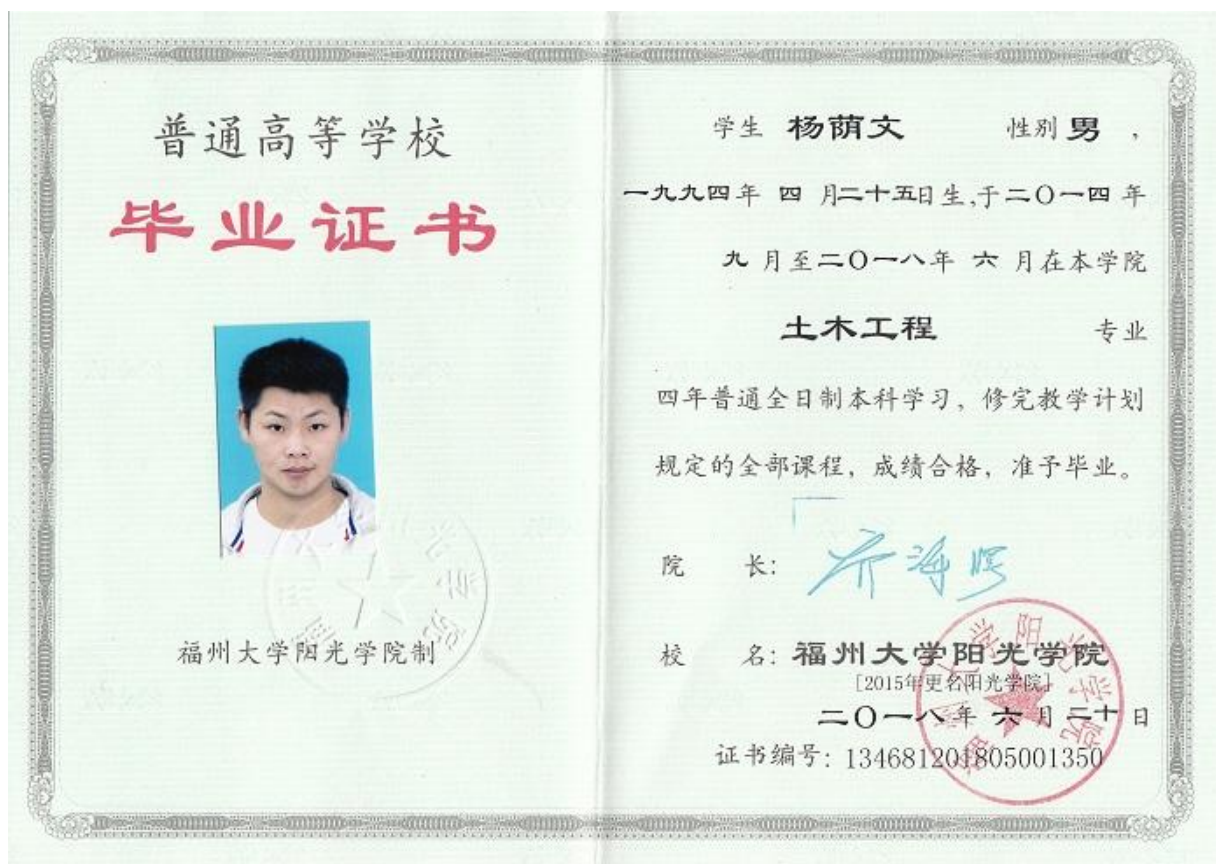 普通高等学校
毕业证书
福州大学阳光学院制
学生 杨荫文 性别 男，
一九九四年 四 月二十五日生,于二〇一四年
九 月至二〇一八年 六 月在本学院
土木工程 专业
四年普通全日制本科学习，修完教学计划
规定的全部课程，成绩合格，准予毕业。
院 长：
校 名：福州大学阳光学院
[2015年更名阳光学院]
二〇一八年 六 月二十日
证书编号：134681201805001350
福州大学阳光学院